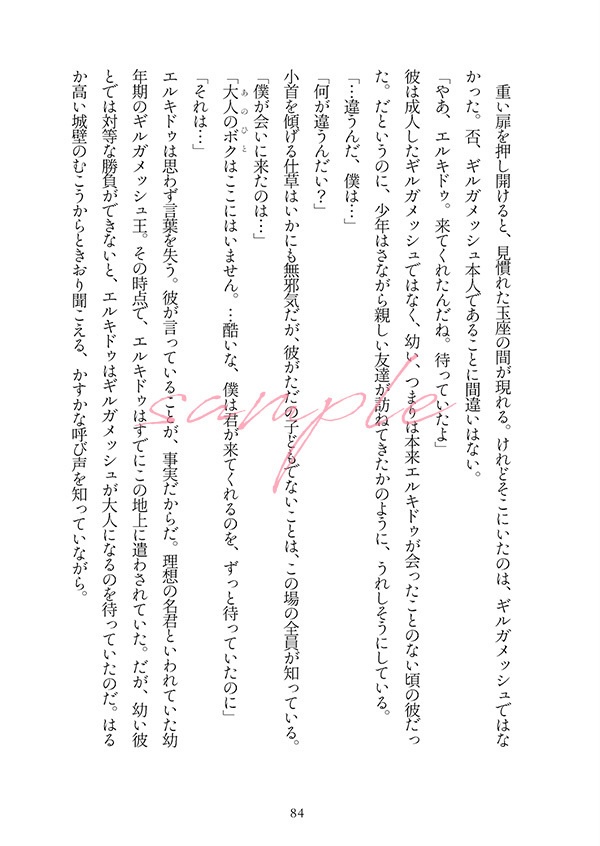 重い扉を押し開けると、見慣れた玉座の間が現れる。けれどそこにいたのは、ギルガメッシュではな
かった。否、ギルガメッシュ本人であることに間違いはない。
「やあ、エルキドゥ。来てくれたんだね。待っていたよ」
彼は成人したギルガメッシュではなく、幼い、つまりは本来エルキドゥが会ったことのない頃の彼だっ
た。だというのに、少年はさながら親しい友達が訪ねてきたかのように、うれしそうにしている。
「…違うんだ、僕は…」
「何が違うんだい？」
小首を傾げる仕草はいかにも無邪気だが、彼がただの子どもでないことは、この場の全員が知っている。
「僕が会いに来たのは…」
あのひと
「大人のボクはここにはいません。…酷いな、僕は君が来てくれるのを、ずっと待っていたのに」
「それは…」
エルキドゥは思わず言葉を失う。彼が言っていることが、事実だからだ。理想の名君といわれていた幼
年期のギルガメッシュ王。その時点で、エルキドゥはすでにこの地上に遣わされていた。だが、幼い彼
とでは対等な勝負ができないと、エルキドゥはギルガメッシュが大人になるのを待っていたのだ。はる
か高い城壁のむこうからときおり聞こえる、かすかな呼び声を知っていながら。
sample
84